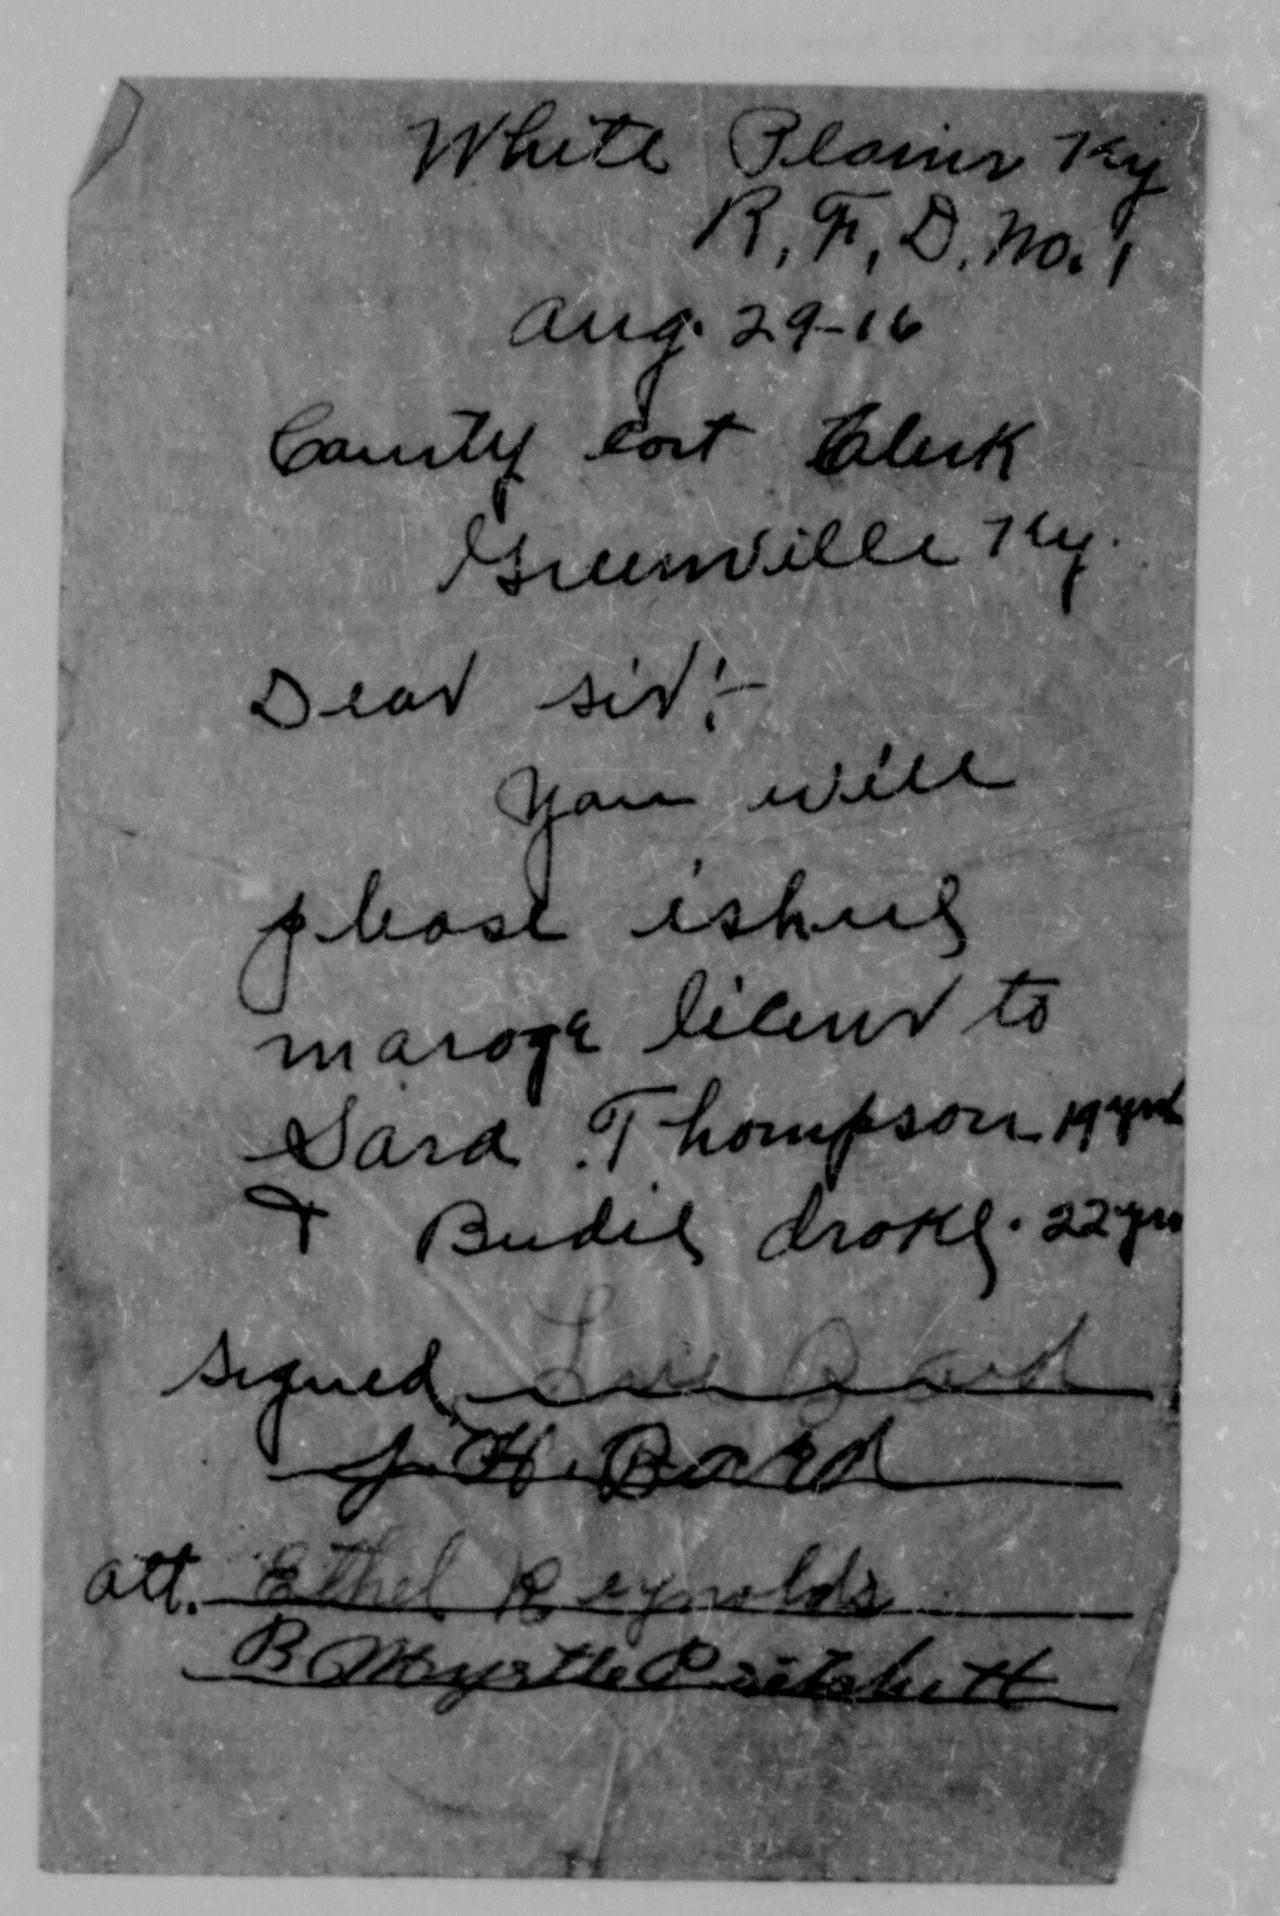 White Plains Ky
R. F. D. No. 1
Aug. 29-16
County cort Clerk
Greenville Ky.
Dear sir:-
you will
please ishue
maroge licens to
Sara Thompson 19 yrs
+ Budie droke. 22 yrs
signed Bard
J. H. Bard
att. Ethel Reynolds
B Myrtle Pritchett